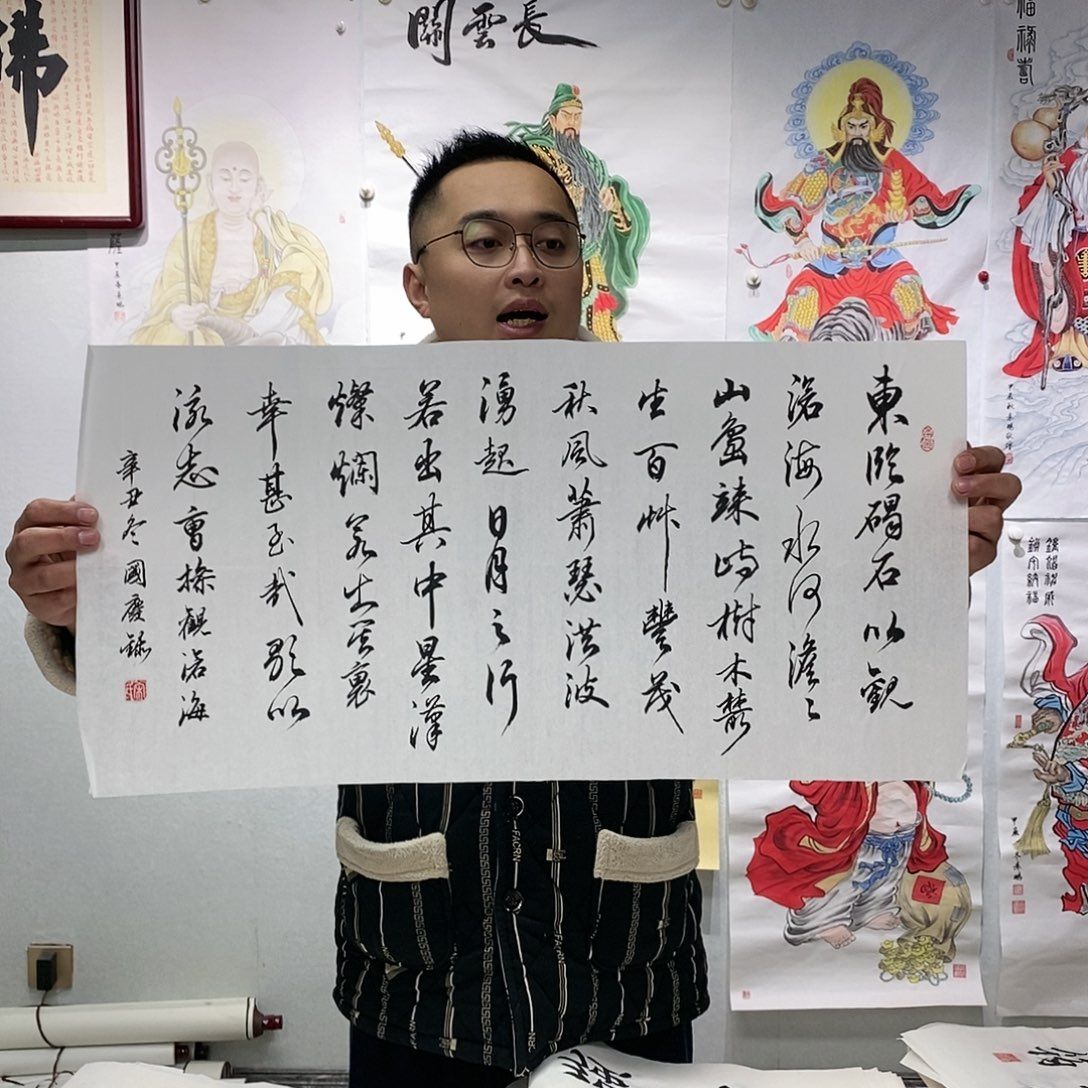 關雲長
佛
福祿壽
東臨碣石以觀
滄海水何澹々
山島竦峙樹木叢
生百艸豐茂
秋風蕭瑟洪波
湧起日月之行
若出其中星漢
燦爛若出其裏
幸甚至哉歌以
詠志曹操觀滄海
辛丑冬國慶錄
FACRN